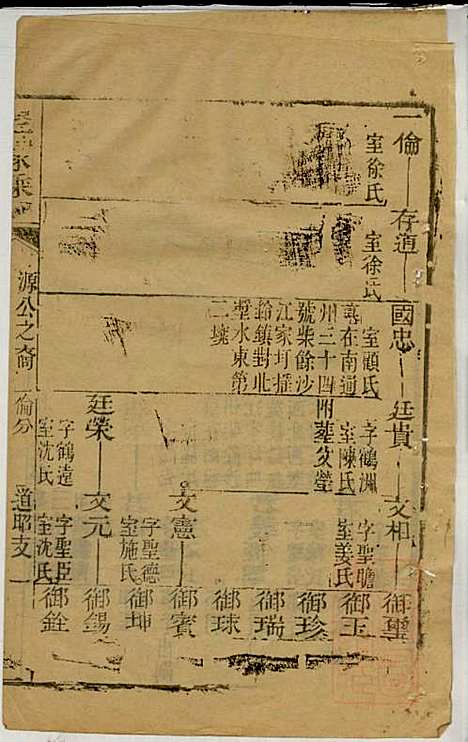 一倫
室徐氏
存道
室徐氏
國忠
室顧氏
墓在南通
州三十四
號柴餘沙
江家圩攉
鈴鎮對北
壟水東第
二壙
廷貴
字鶴洲
室陳氏
附葬父塋
廷榮
字鶴遠
室沈氏
文相
字聖瞻
室姜氏
文憲
字聖德
室施氏
文元
字聖臣
室沈氏
御璽
御玉
御珍
御瑞
御球
御賓
御坤
御錫
御銓
源公之裔
倫分
道昭支
一